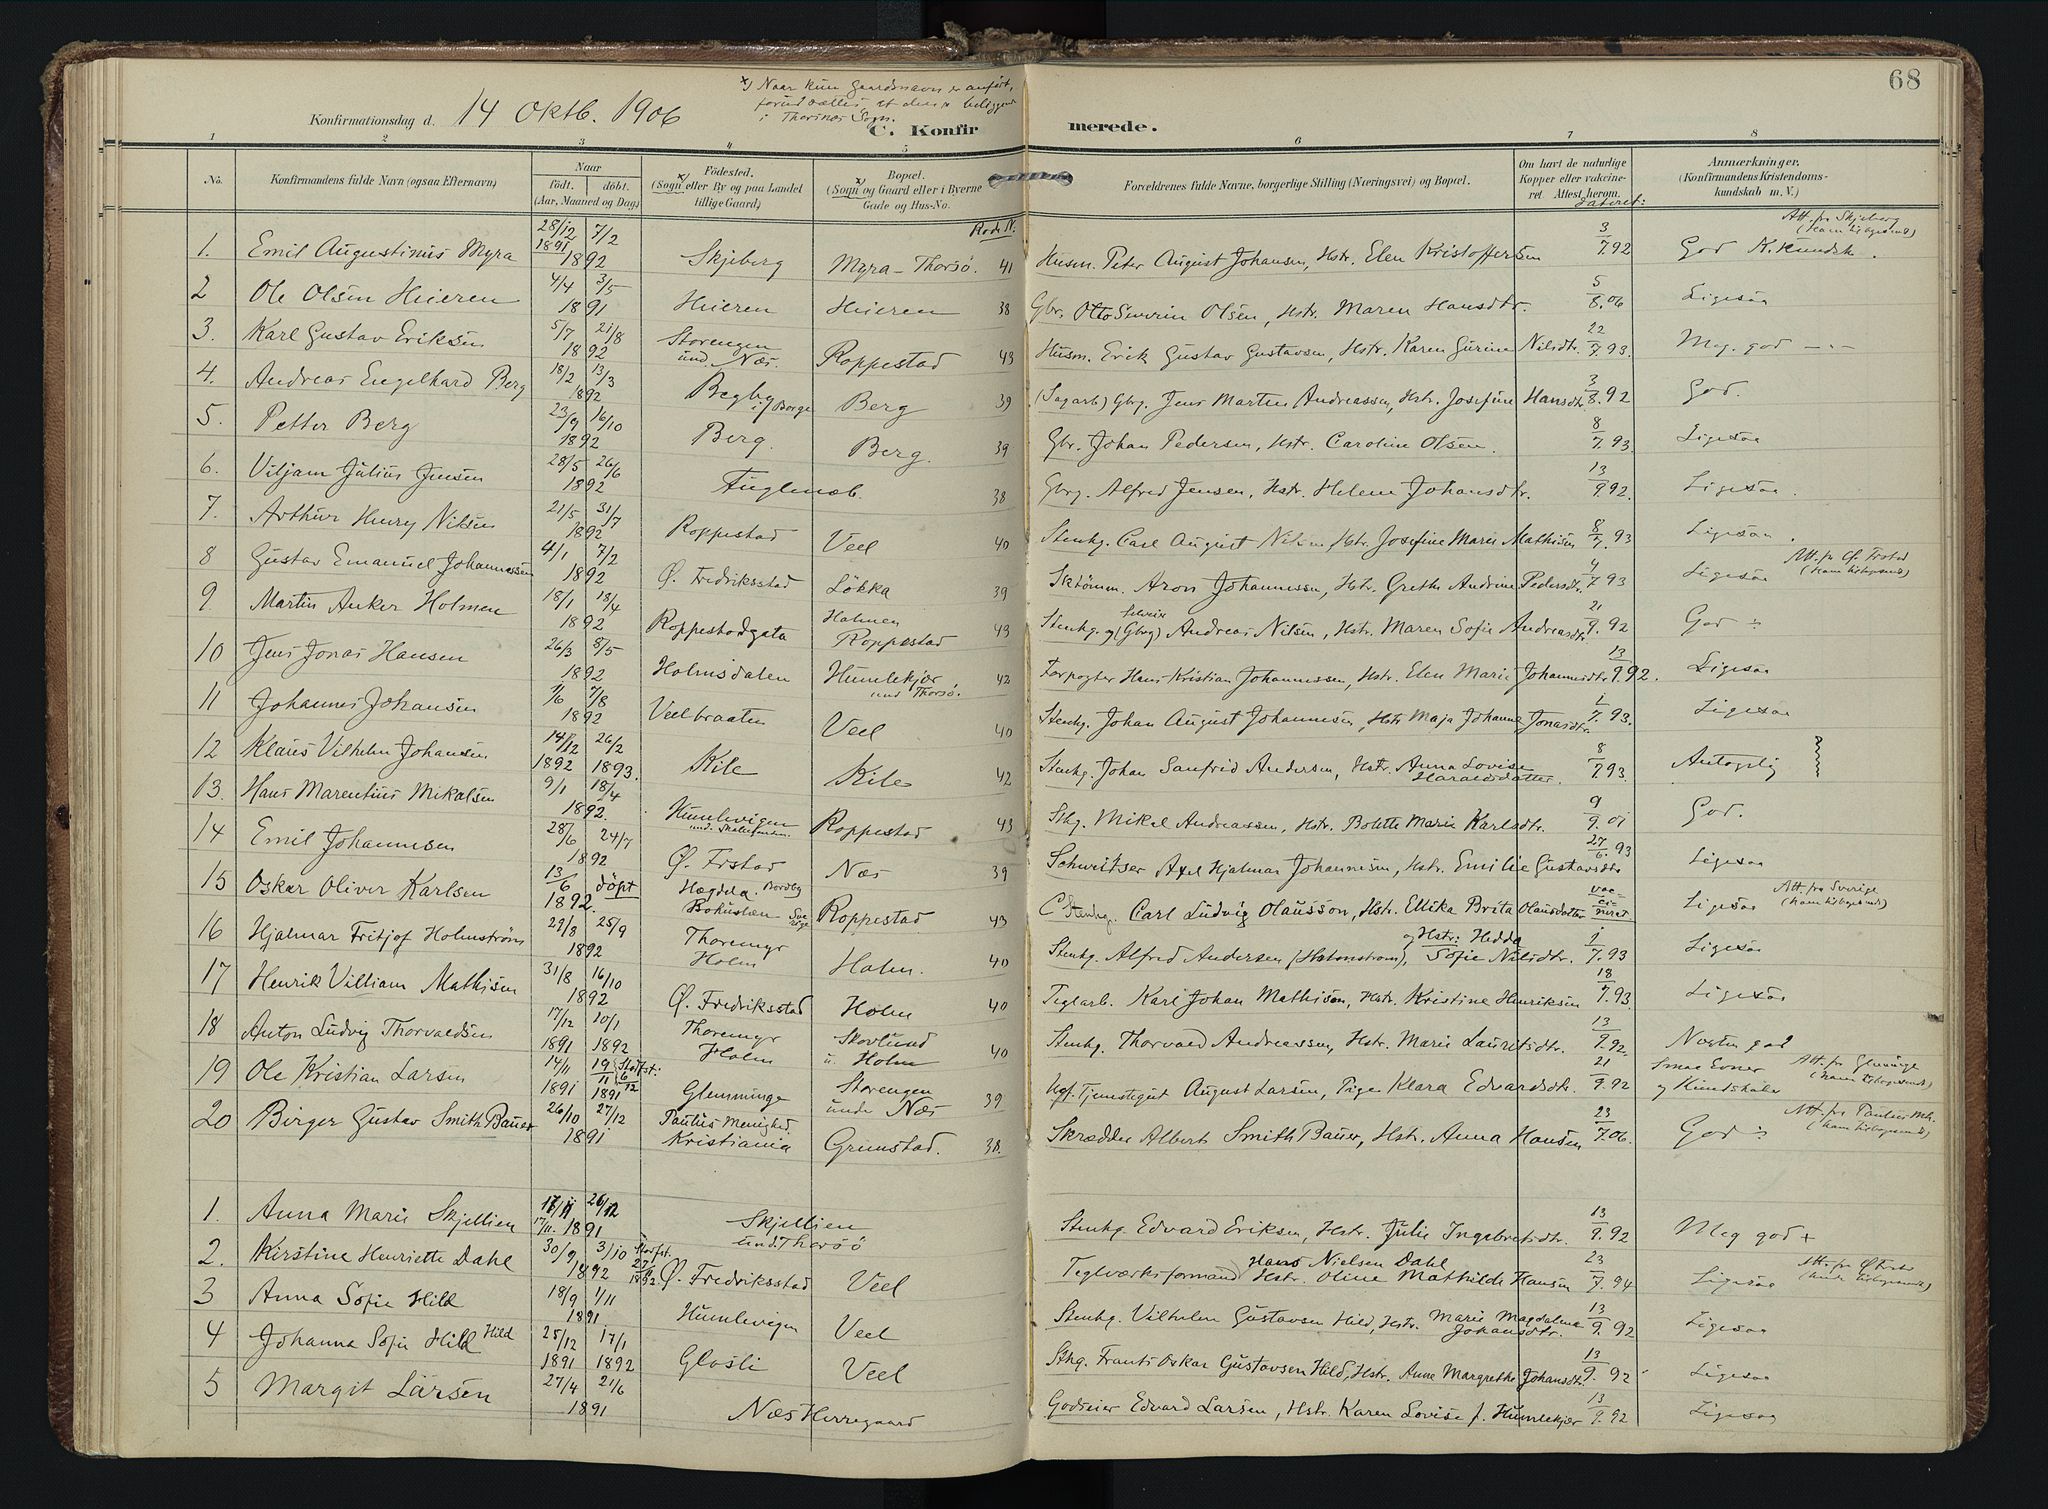 68
Konfirmationsdag d. 14 Oktb. 1906
x) Naar kun Gaardsnavn er anført,
forudsættes at den er beliggende
i Thorsnæs Sogn.
C. Konfirmerede.
1 2 3 4 5 6 7 8
No. Konfirmandens fulde Navn (ogsaa Efternavn)
Naar født. døbt. (Aar, Maaned og Dag)
Fødested. (Sogn eller By og paa Landet tillige Gaard)
Bopæl. (Sogn og Gaard eller i Byerne Gade og Hus-No.
Rode N.
Forældrenes fulde Navne, borgerlige Stilling (Næringsvei) og Bopæl.
Om havt de naturlige Kopper eller vakcineret. Attest herom. dateret:
Anmærkninger. (Konfirmandens Kristendomskundskab m. V.)
1. Emil Augustinus Myra 28/12 1891 7/2 1892 Skjeberg Myra - Thorsø. 41 Husm. Peter August Johansen, Hstr. Elen Kristoffersen 3/7.92 God K.kundsk. Att. fra Skjeberg
2 Ole Olsen Hieren 4/4 3/5 1891 Hieren Hieren 38 Gbr. Otto Severin Olsen, Hstr. Maren Hansdtr. 5/8.06 Ligesaa
3. Karl Gustav Eriksen 5/7 21/8 1892 Storengen und. Næs. Roppestad 43 Husm. Erik Gustav Gustavsen, Hstr. Karen Gurine Nilsdtr. 22/7.93. Meg. god
4. Andreas Engelhard Berg 18/2 13/3 1892 Begby i Borge Berg 39 (Sagarb) Gbrg. Jens Martin Andreassen, Hstr. Josefine Hansdtr. 3/8.92 God.
5. Petter Berg 23/9 16/10 1892 Berg. Berg. 39 Gbr. Johan Pedersen, Hstr. Caroline Olsen. 8/7.93. Ligesaa
6. Viljam Julius Jensen 28/5 26/6 1892 Fuglenæb. 38 Gbrg. Alfred Jensen, Hstr. Helene Johansdtr. 13/9.92. Ligesaa.
7. Arthur Henry Nilsen 21/5 31/7 1892 Roppestad Veel 40 Stenhg. Carl August Nilsen, Hstr. Josefine Marie Mathisen 8/7.93 Ligesaa.
8 Gustav Emanuel Johannessen 4/1 7/2 1892 Ø. Fredriksstad Løkka 39 Sktømm. Aron Johannessen, Hstr. Grethe Andrine Pedersdtr. 4/7 93 Ligesaa
9. Martin Anker Holmen 18/1 18/4 1892 Roppestadgata Holmen Roppestad 43 Stenhg. og (Gbrg) Andreas Nilsen, Hstr. Maren Sofie Andreasdtr. 21/9.92 God
10 Jens Jonas Hansen 26/3 8/5 1892 Holmsdalen Humlekjær und Thorsø. 42 Forpagter Hans Kristian Johannessen, Hstr. Elen Marie Johannesdtr. 13/9.92. Ligesaa
11 Johannes Johansen 7/6 7/8 1892 Veelbraaten Veel 40 Stenhg. Johan August Johannesen, Hstr Maja Johanne Jonasdtr. 1/7.93. Ligesaa
12 Klaus Vilhelm Johansen 14/12 1892 26/2 1893. Kile Kile 42 Stenhg. Johan Sanfrid Andersen, Hstr. Anna Lovise Haraldsdatter. 8/7.93. Antagelig
13. Hans Marentius Mikalsen 9/1 18/4 1892. Humlevigen Roppestad 43 Sthg. Mikal Andreassen, Hstr. Bolette Marie Karlsdtr. 9/9.01 God.
14 Emil Johannesen 28/6 24/7 1892 Ø. Frstad Næs 39 Schweitser Axel Hjalmar Johannesen, Hstr. Emilie Gustavsdtr. 27/6.93 Ligesaa
15 Oskar Oliver Karlsen 13/6 1892. døpt Hægdela. Bohuslæn Roppestad 43 Stenhg. Carl Ludvig Olausson, Hstr. Ellika Brita Olausdatter vaccineret Ligesaa Att. fra Sverige
16 Hjalmar Fritjof Holmstrøm 29/8 25/9 1892 Thoremyr Holm Holm. 40 Stenhg. Alfred Andersen (Holmstrøm), og Hstr: Hedda Sofie Nilsdtr. 1/7.93 Ligesaa
17 Henrik Villiam Mathisen 31/8 16/10 1892 Ø. Fredriksstad Holm 40 Teglarb. Karl Johan Mathisen, Hstr. Kristine Henriksen 18/7.93. Ligesaa
18 Anton Ludvig Thorvaldsen 17/12 1891 10/1 1892 Thoremyr Holm Skovlund u. Holm 40 Stenhg. Thorvald Andreassen, Hstr. Marie Lauritsdtr. 13/9.92. Næsten god
19 Ole Kristian Larsen 14/11 1891 19/11 1891 Stadfst: 6/12 Glemminge Storengen under Næs 39 Ugf. Tjenestegut August Larsen, Pige Klara Edvardsdtr. 21/9.92 Smaa Evner og Kundskaber Att. fra Glemminge
20 Birger Gustav Smith Bauer 26/10 27/12 1891 Paulus Menighed Kristiania Grimstad. 38. Skrædder Albert Smith Bauer, Hstr. Anna Hansen 23/7.06. God Att. fra Paulus Mh.
1. Anna Marie Skjellien 17/11 26/12 17/11. 1891 Skjellien und. Thorsø Stenhg. Edvard Eriksen, Hstr. Julie Ingebretsdtr. 13/9.92 Meg god +
2. Kirstine Henriette Dahl 30/9 3/10 1892 Stadfst. Ø. Fredriksstad Veel Teglværksformand Hans Nielsen Dahl Hstr. Oline Mathilde Hansen 23/7.94 Ligesaa
3 Anna Sofie Hild 18/9 1/11 1891 Humlevigen Veel Stenhg. Vilhelm Gustavsen Hild, Hstr. Marie Magdalena Johansdtr. 13/9.92 Ligesaa
4 Johanna Sofie Hild Hild 25/12 1891 17/1 1892 Glosli Veel Sthg. Frants Oskar Gustavsen Hild, Hstr. Anne Margrethe Johansdtr. 13/9.92 Ligesaa
5 Margit Larsen 27/4 21/6 1891 Næs Herregaard Godseier Edvard Larsen, Hstr. Karen Lovise f. Humlekjær 13/9.92 Ligesaa